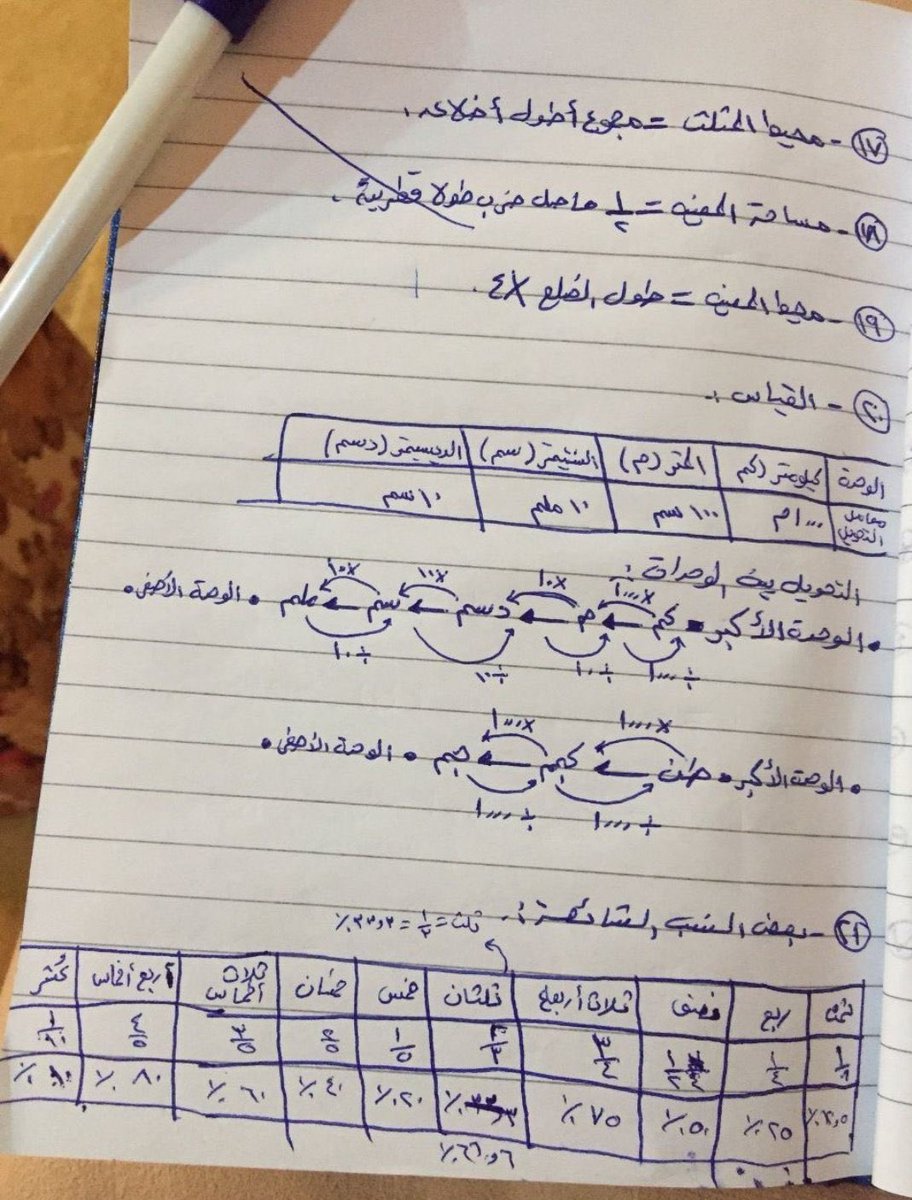 ١٧ - محيط المثلث = مجموع أطول أضلاعه.
١٨ - مساحة المعين = ١/٢ حاصل ضرب طولا قطرية.
١٩ - محيط المعين = طول الضلع × ٤.
٢٠ - القياس :
الوحدة | كيلومتر (كم | المتر (م) | السنتيمتر (سم) | الديسيمتر (دسم)
معامل التحويل | ١٠٠٠م | ١٠٠ سم | ١٠ ملم | ١٠ سم
التحويل بين الوحدات :
×١٠٠٠ ×١٠ ×١٠ ×١٠
• الوحدة الأكبر • كم ← م ← دسم ← سم ← ملم • الوحدة الأصغر •
÷١٠٠٠ ÷١٠ ÷١٠ ÷١٠
×١٠٠٠ ×١٠٠٠
• الوحدة الأكبر • طن ← كجم ← جم • الوحدة الأصغر •
÷١٠٠٠ ÷١٠٠٠
٢١ - بعض النسب الشائعة :
ثلث = ١/٣ = ٣٣,٣٪
ثمن | ربع | نصف | ثلاث أرباع | ثلثان | خمس | خمسان | ثلاث أخماس | أربع أخماس | عُشر
١/٤ | ١/٢ | ٣/٤ | ٢/٣ | ١/٥ | ٢/٥ | ٣/٥ | ٤/٥ | ١/١٠
٢٥٪ | ٥٠٪ | ٧٥٪ | ٢٠٪ | ٤٠٪ | ٦٠٪ | ٨٠٪ | ١٠٪
٦٦,٦٪